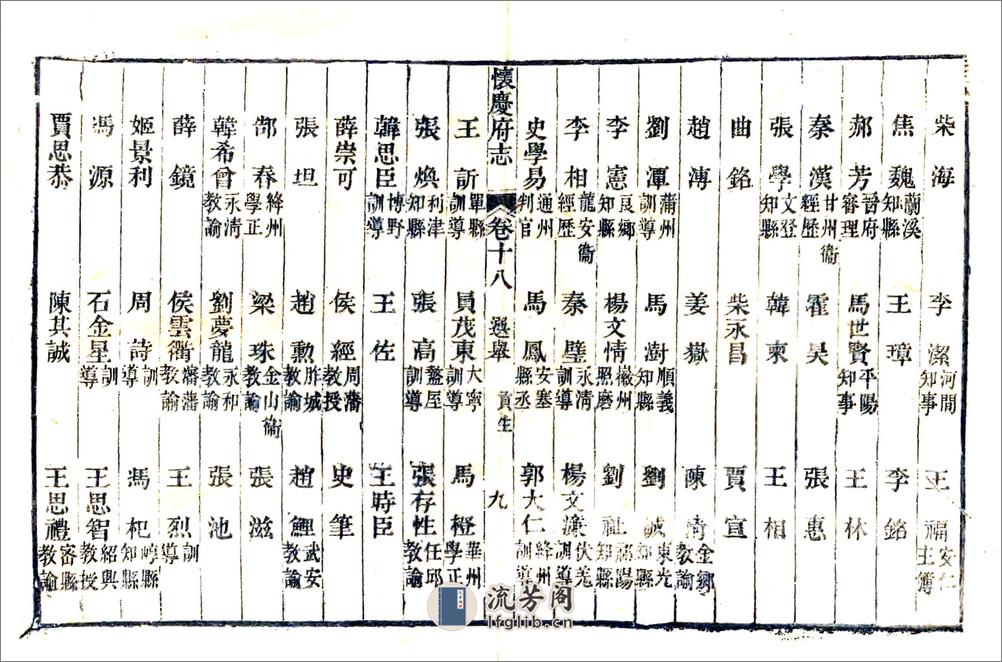 柴海 李潔河間知事 王福安仁主簿
焦魏蘭溪知縣 王璋 李銘
郝芳晉府審理 馬世賢平陽知事 王林
秦漢甘州衞經歷 霍昊 張惠
張學文登知縣 韓東 王相
曲銘 柴永昌 賈宣
趙溥 姜嶽 陳情金鄉教諭
劉潭蒲州訓導 馬澍順義知縣 劉誠東光知縣
李憲良鄉知縣 楊文情徽州照磨 劉社知縣
李相龍安衞經歷 秦璧永清訓導 楊文濂伏羗訓導
史學易通州判官 馬鳳安塞縣丞 郭大仁絳州訓導
懷慶府志 卷十八 選舉 貢生 九
王訢單縣訓導 員茂東大寧訓導 馬樫華州學正
張煥利津知縣 張高盩厔訓導 張存性任邱教諭
韓思臣博野訓導 王佐 王時臣
薛崇可 侯經周藩教授 史筆
張坦 趙勲胙城教諭 趙鯉武安教諭
郜春絳州學正 梁珠金山衞教諭 張滋
韓希曾永清教諭 劉夢龍永和教諭 張池
薛鏡 侯雲衢瀋藩教諭 王烈訓導
姬景利 周詩訓導 馮杞崞縣知縣
馮源 石金星訓導 王思智紹興教授
賈思恭 陳其誠 王思禮密縣教諭
流芳阁
lfglib.cn